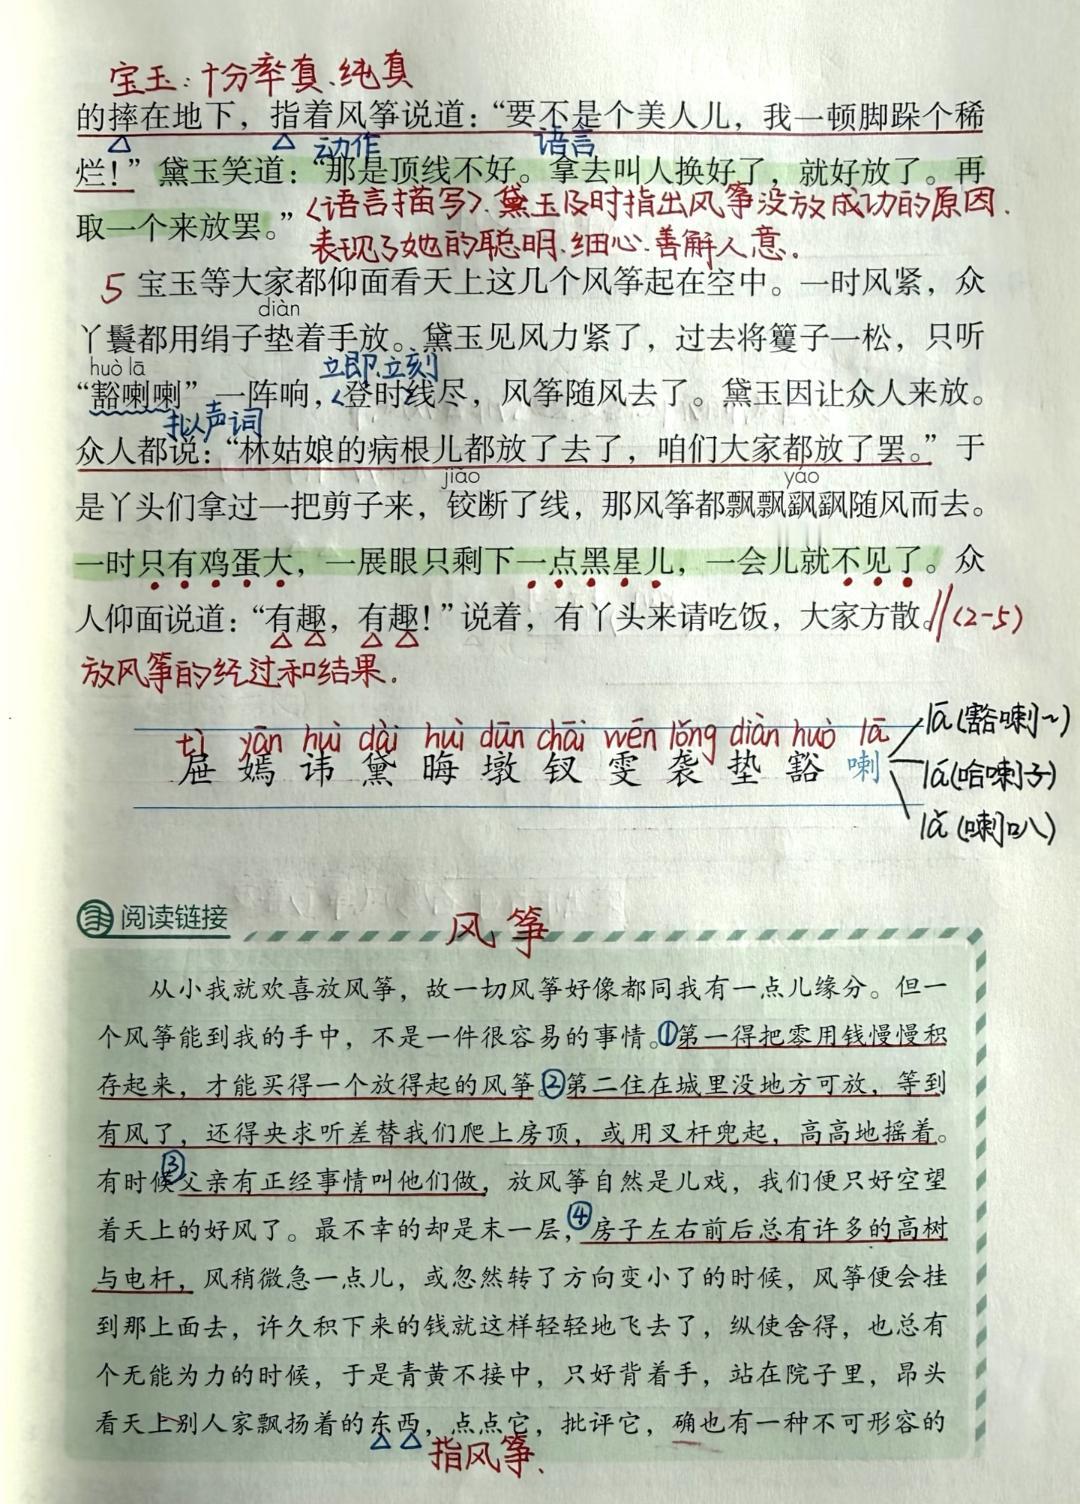 宝玉:十分率真、纯真
的摔在地下，指着风筝说道：“要不是个美人儿，我一顿脚跺个稀
动作 语言
烂！”黛玉笑道：“那是顶线不好。拿去叫人换好了，就好放了。再
取一个来放罢。”
〈语言描写〉黛玉及时指出风筝没放成功的原因.
表现了她的聪明、细心、善解人意.
5 宝玉等大家都仰面看天上这几个风筝起在空中。一时风紧，众
diàn
丫鬟都用绢子垫着手放。黛玉见风力紧了，过去将籰子一松，只听
huò lā 立即、立刻
“豁喇喇”一阵响，登时线尽，风筝随风去了。黛玉因让众人来放。
拟声词
众人都说：“林姑娘的病根儿都放了去了，咱们大家都放了罢。”于
jiǎo yáo
是丫头们拿过一把剪子来，铰断了线，那风筝都飘飘飖飖随风而去。
一时只有鸡蛋大，一展眼只剩下一点黑星儿，一会儿就不见了。众
人仰面说道：“有趣，有趣！”说着，有丫头来请吃饭，大家方散。//(2-5)
放风筝的经过和结果.
tì yān huì dài huì dūn chāi wēn lǒng diàn huò lā
屉 嫣 讳 黛 晦 墩 钗 雯 袭 垫 豁 喇
lā(豁喇~)
lá(哈喇子)
lǎ(喇叭)
阅读链接
风筝
从小我就欢喜放风筝，故一切风筝好像都同我有一点儿缘分。但一
个风筝能到我的手中，不是一件很容易的事情。①第一得把零用钱慢慢积
存起来，才能买得一个放得起的风筝。②第二住在城里没地方可放，等到
有风了，还得央求听差替我们爬上房顶，或用叉杆兜起，高高地摇着。
有时候③父亲有正经事情叫他们做，放风筝自然是儿戏，我们便只好空望
着天上的好风了。最不幸的却是末一层，④房子左右前后总有许多的高树
与电杆，风稍微急一点儿，或忽然转了方向变小了的时候，风筝便会挂
到那上面去，许久积下来的钱就这样轻轻地飞去了，纵使舍得，也总有
个无能为力的时候，于是青黄不接中，只好背着手，站在院子里，昂头
看天上别人家飘扬着的东西，点点它，批评它，确也有一种不可形容的
指风筝、